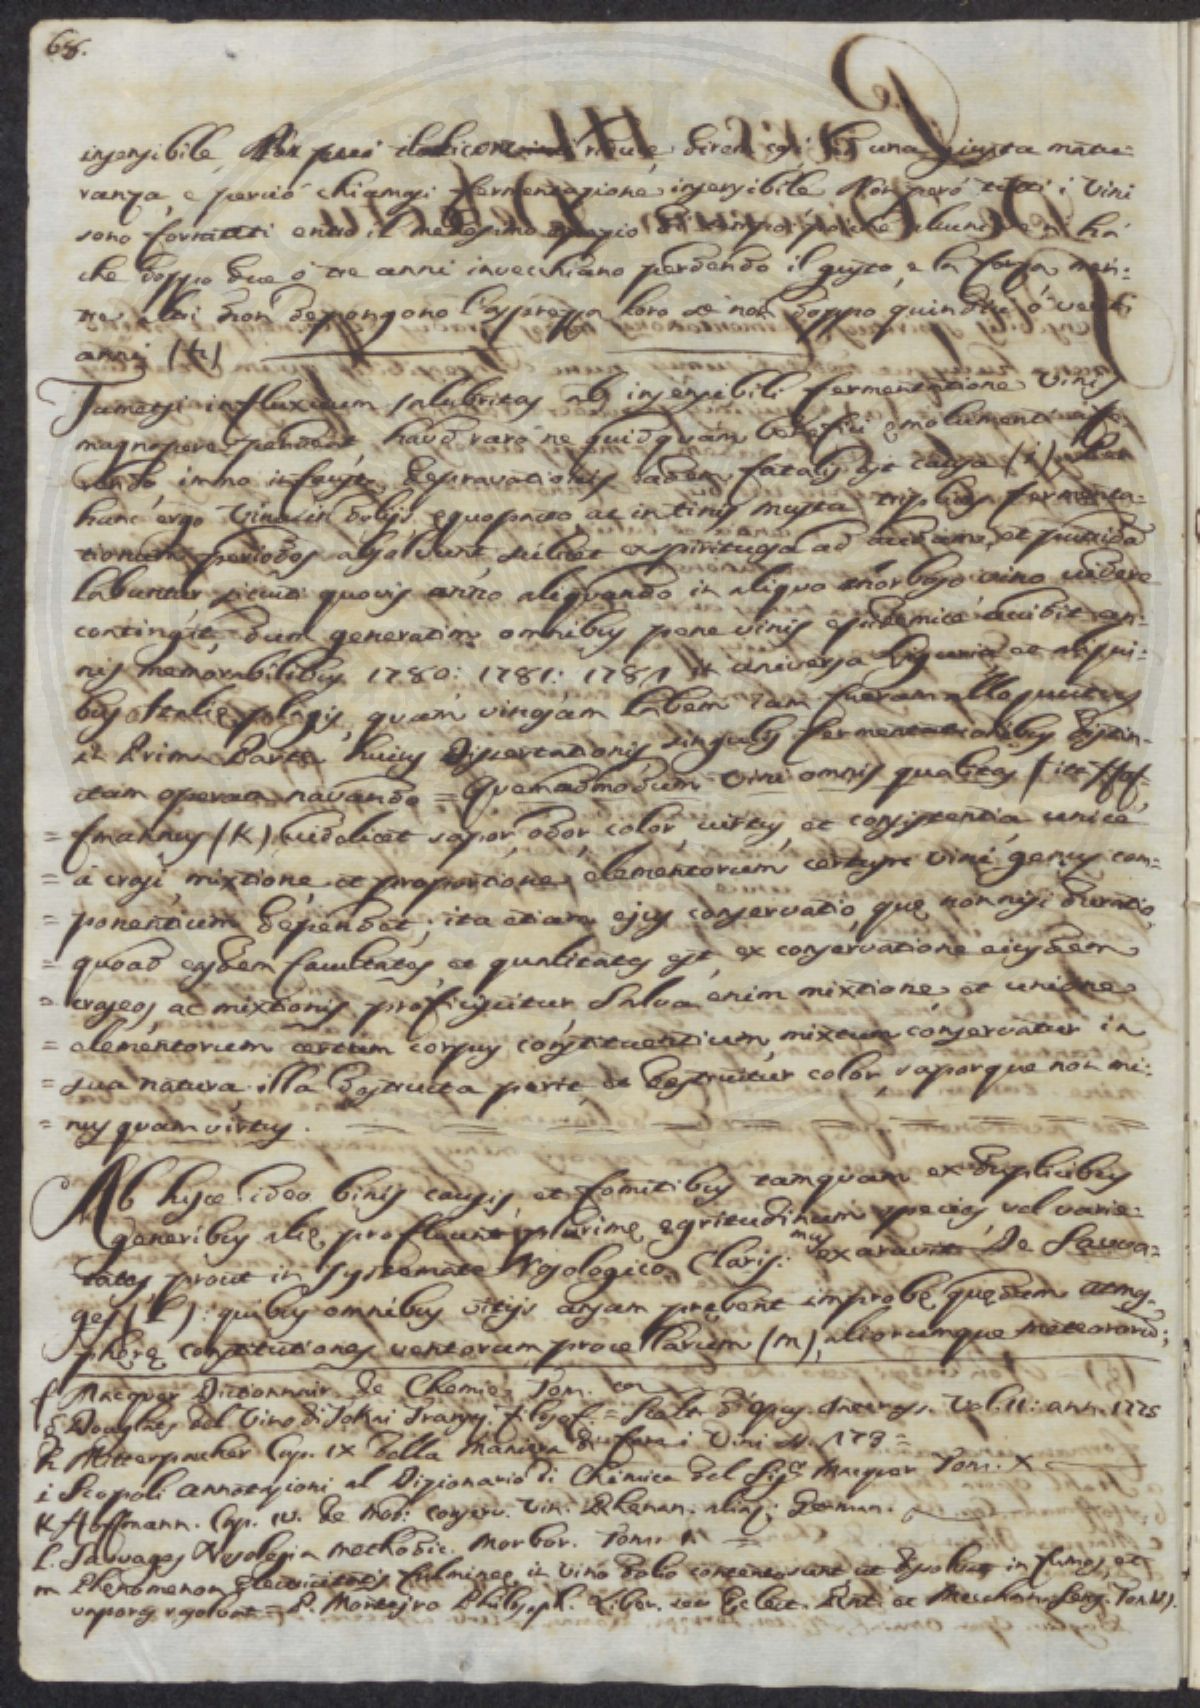 68.
insensibile, Non può riduce, direm così, ad una giusta matu:
ranza, e perciò chiamasi fermentazione insensibile. Non però tutti i Vini
sono formati entro il medesimo spazio di tempo; poiché alcuni ve n' hà
che doppo due ó tre anni invecchiano perdendo il gusto, e la forza, men:
tre altri non depongono l'asprezza loro se non doppo quindici ó venti
anni (h)
Tametsi influxuum salubritas ab insensibili fermentatione Vinis
magnopere pendeat, haud raró ne quidquam beneficii emolumenti
immo infausta depravationis eadem fatalis est causa (i)
hanc ergo Vina in dolijs, ac in tinis musta triplices fermenta:
tionum periodos absolvunt, scilicet ex spirituosa ad acidam, et putrida
labuntur, sicuti quovis anno aliquando in aliquo morboso vino videre
contingit, dum generatim omnibus pene vinis epidemicè accidit an:
nis memorabilibus 1780: 1781: 1784 in universa Liguria, et aliqui:
bus Italię plagis, quam vinosam labem iam
in Prima Parte huius Dissertationis, singulis fermentationibus distin:
ctam operam navando = Quemadmodum Vini omnis qualitas (itt Hof:
= fmannus (K) videlicet sapor, odor, color, virtus, et consistentia unicè
= à crasi, mixtione, et proportione elementorum certum vini genus com:
= ponentium dependet; ita etiam ejus conservatio, quę nonnisi duratio,
= quoad easdem facultates, et qualitates est, ex conservatione eiusdem
= craseos, ac mixtionis proficiscitur. Salva enim mixtione, et unione
= elementorum certum corpus constituentium, mixtum conservatur in
= sua natura, illa destructa perit, et destruitur color, saporque non mi:
= nus quam virtus.
Ab hisce ideo binis causis, et fomitibus tamquam ex duplicibus
generibus alię profluunt plurimę egritudinum species, vel varie:
tates, prout in Systemate Nosologico Claris:mus exaravit De Sauva:
ges (L): quibus omnibus vitijs ansam prębent improbę quędam atmo:
spherę constitutiones ventorum, procellarum (m), aliorumque meteororũ;
f Macquer Dictionnair. de Chemie. Tom.
g Douglaes del Vino di Tokai Transs. filosof. = Scelta d'Opus. Interess. Vol. II: ann. 1775
h Mitterpacher Cap. IX della Maniera di fare i Vini N. 179 =
i Scopoli annotazioni al Dizionario di Chimica del Sigr. Macquer Tom. X
K Hoffmann. Cap. IV. de Mod: conserv. Vin. Rhenan. alias; German.
L. Sauvages Nosologia methodic. Morbor. Tom. 1.
m Phenomenon Electricitatis fulmineę in vino dolio contento sunt ut dissolvat in fumos, et
vapores resolvat = P. Monteiro Philosoph. Liber. seu Eclect. Rat. et Mechan. Sens. Tom. VI).